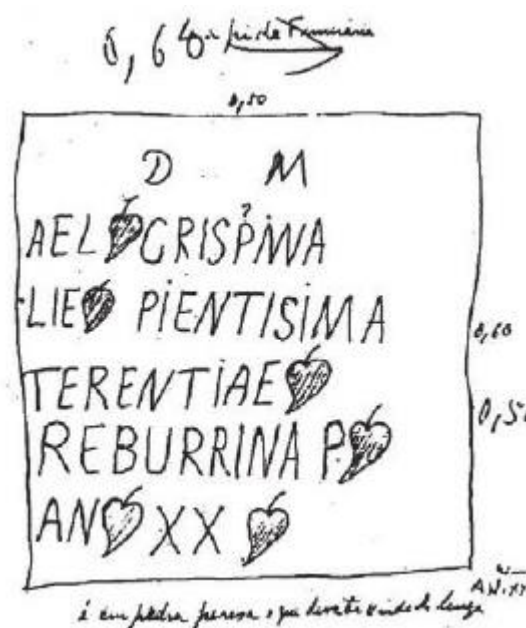 0,6
0,50
D M
AEL ❦ CRISPINA
LIE ❦ PIENTISIMA
TERENTIAE ❦
REBURRINA P ❦
AN ❦ XX ❦
0,60
0,5
é em pedra